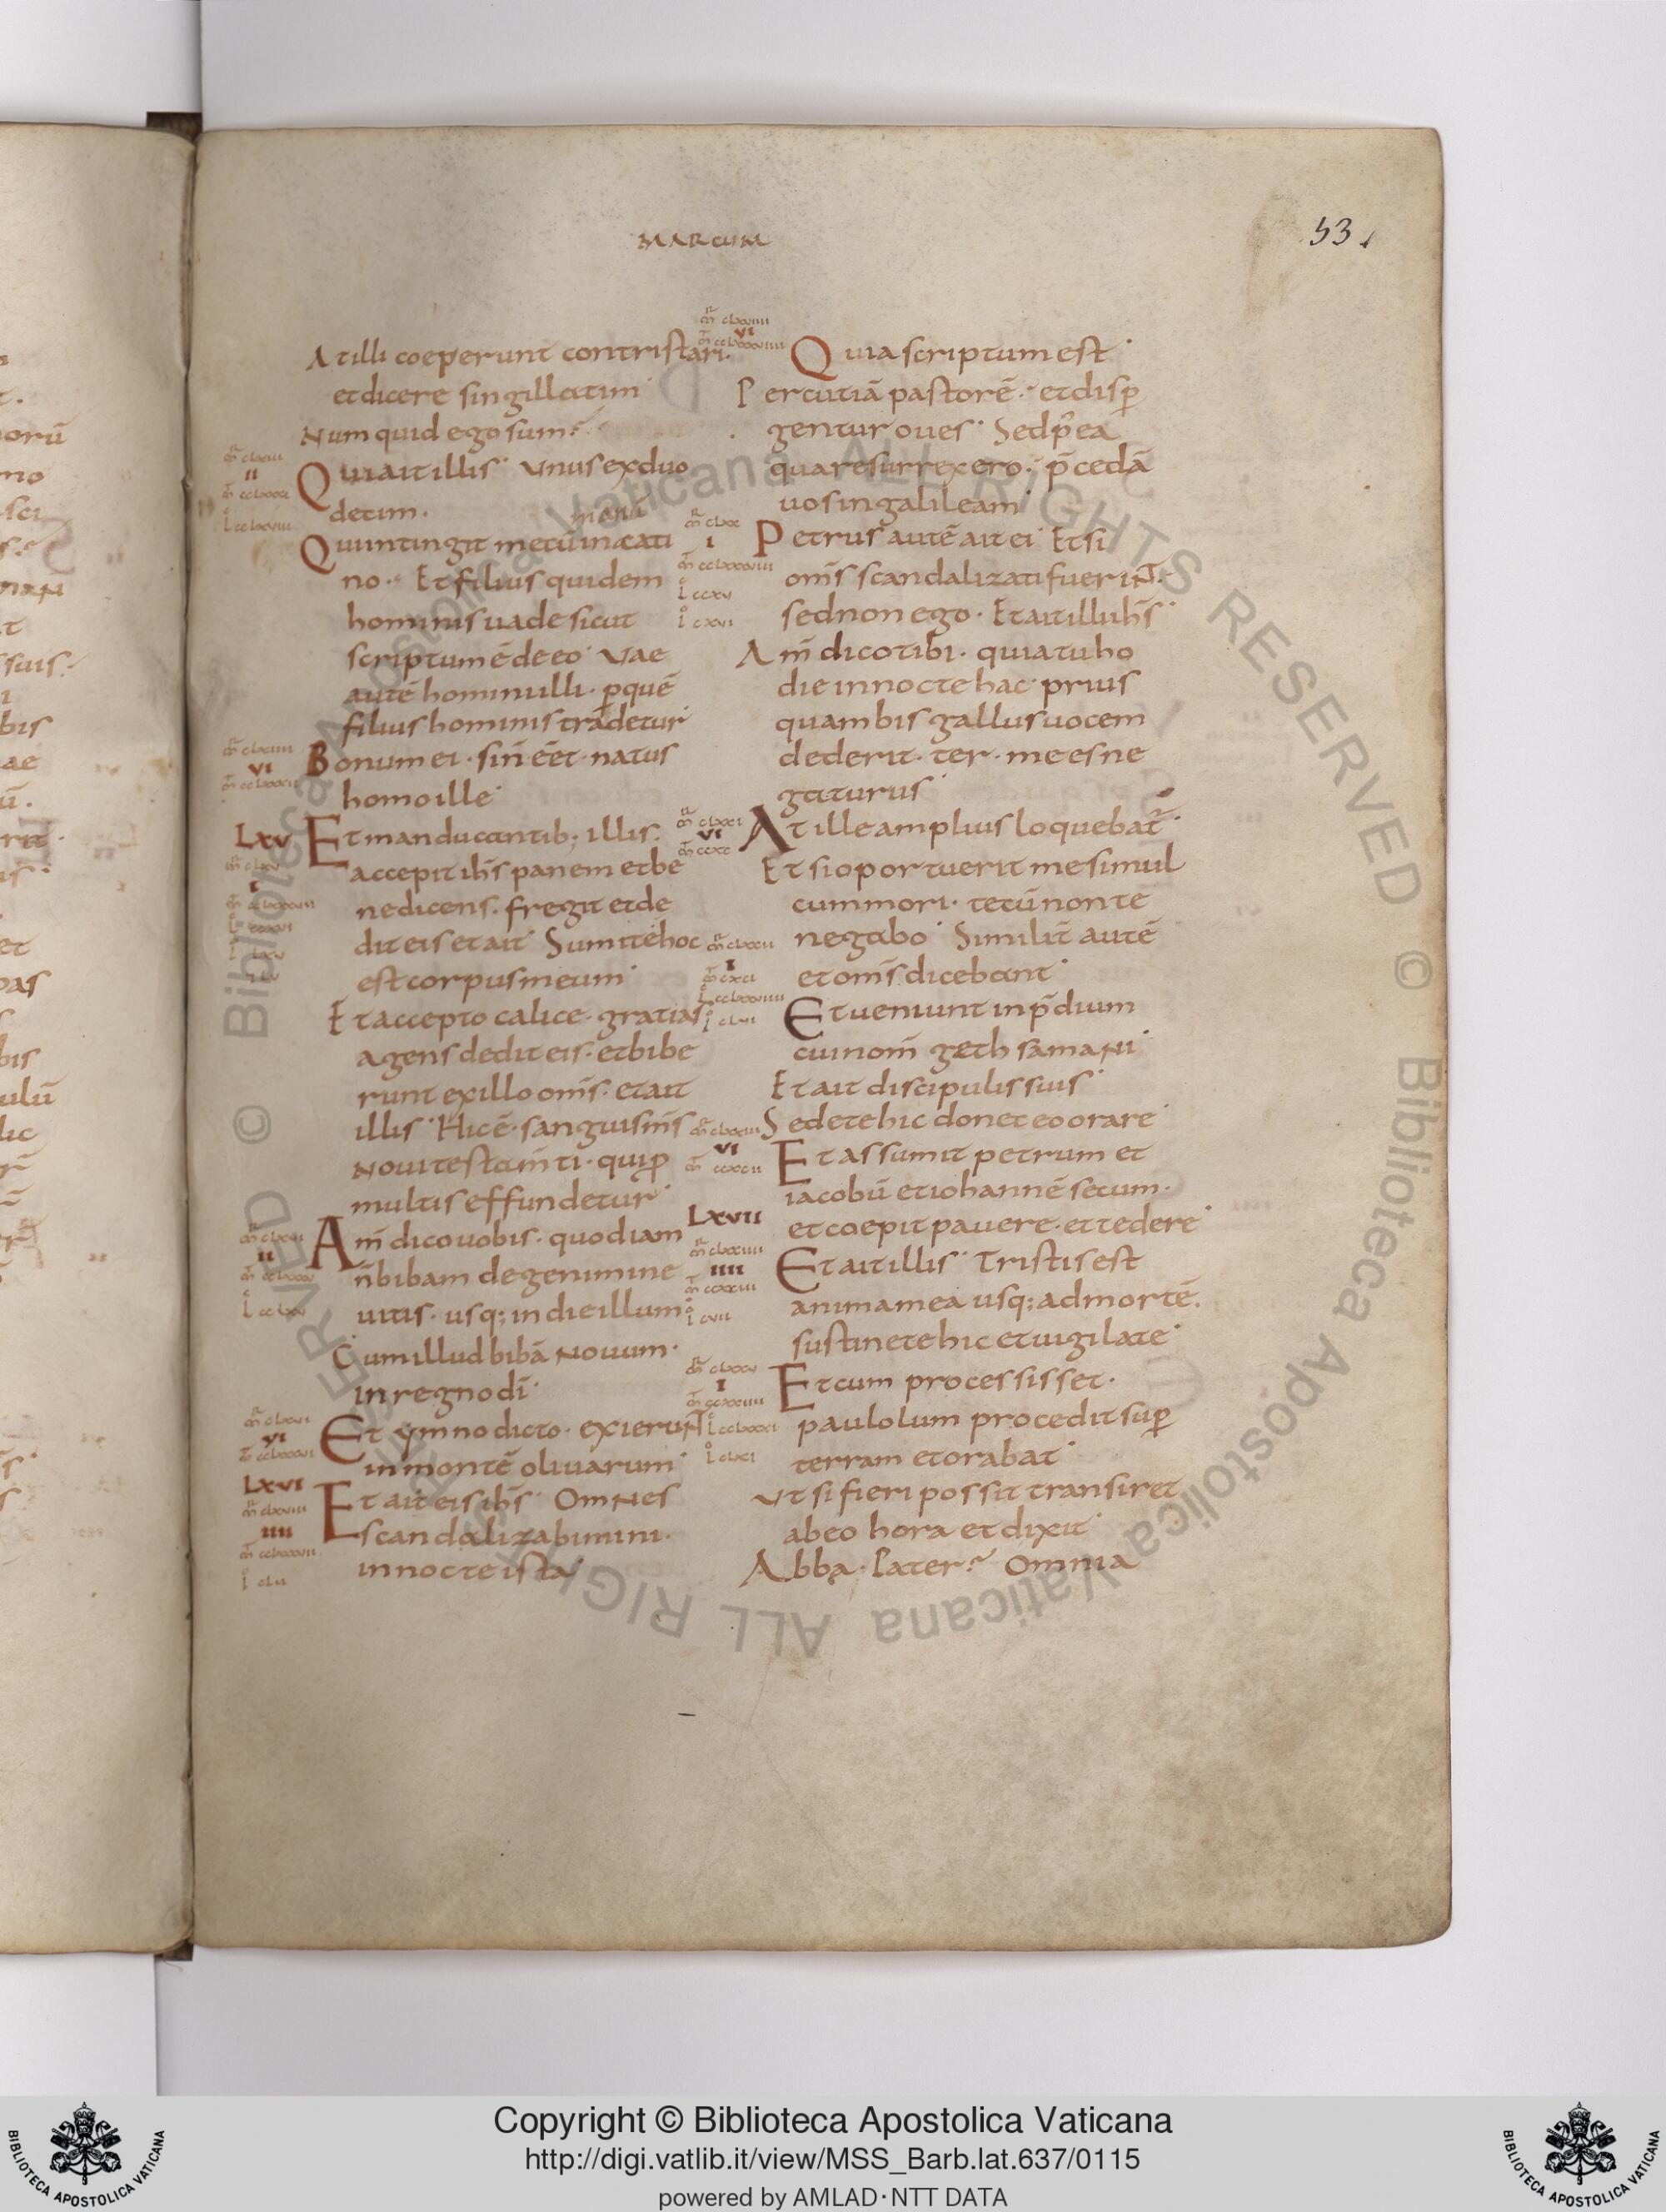 MARCUM
53
At illi coeperunt contristari.
et dicere singillatim
Numquid ego sum?
Qui ait illis. Unus ex duo
decim.
manū
Qui intingit mecū in cati
no. Et filius quidem
hominis uade sicut
scriptum ē de eo. Vae
autē homini illi. ꝑ quē
filius hominis tradetur
Bonum ei. sin̄ eēt. natus
homo ille
LXV
Et manducantib; illis.
accepit ihs̄ panem et be
nedicens. fregit et de
dit eis et ait. Sumite hoc
est corpus meum
Et accepto calice. gratias
agens dedit eis. et bibe
runt ex illo om̄s. et ait
illis. Hic ē. sanguis ms̄
Noui testam̄ti. qui ꝓ
multis effundetur
Am̄ dico uobis. quod iam
n̄ bibam de genimine
uitis. usq; in die illum
Cum illud bibā Nouum.
in regno dī.
Et ymno dicto. exieruNT
in montē oliuarum
LXVI
Et ait eis ihs̄. OmNes
scandalizabimini.
in nocte ista
Quia scriptum est
Percutiā pastorē. et disꝑ
gentur oues. Sed p̄ ea
qua resurrexero. p̄cedā
uos in galileam
Petrus autē ait ei. Et si
om̄s scandalizati fueriNT.
sed non ego. Et ait illi ihs̄
Am̄ dico tibi. quia tu ho
die in nocte hac. prius
quam bis gallus uocem
dederit. ter. me es ne
gaturus
At ille amplius loquebat̄.
Et si oportuerit me simul
cummori. tecū non te
negabo. Similit̄ autē
et om̄s dicebant
Et ueniunt in p̄dium
cui nom̄ gethsamaNi
Et ait discipulis suis
Sedete hic donec eo orare
Et assumit petrum et
iacobū et iohannē secum.
LXVII
et coepit pauere. et tedere
Et ait illis. Tristis est
anima mea usq; ad mortē.
sustinete hic et uigilate
Et cum processisset.
paululum procedit suꝑ
terram et orabat
Ut si fieri possit transiret
ab eo hora et dixit
Abba. Pater. Omnia
Copyright © Biblioteca Apostolica Vaticana
http://digi.vatlib.it/view/MSS_Barb.lat.637/0115
powered by AMLAD·NTT DATA
BIBLIOTECA APOSTOLICA VATICANA
BIBLIOTECA APOSTOLICA VATICANA